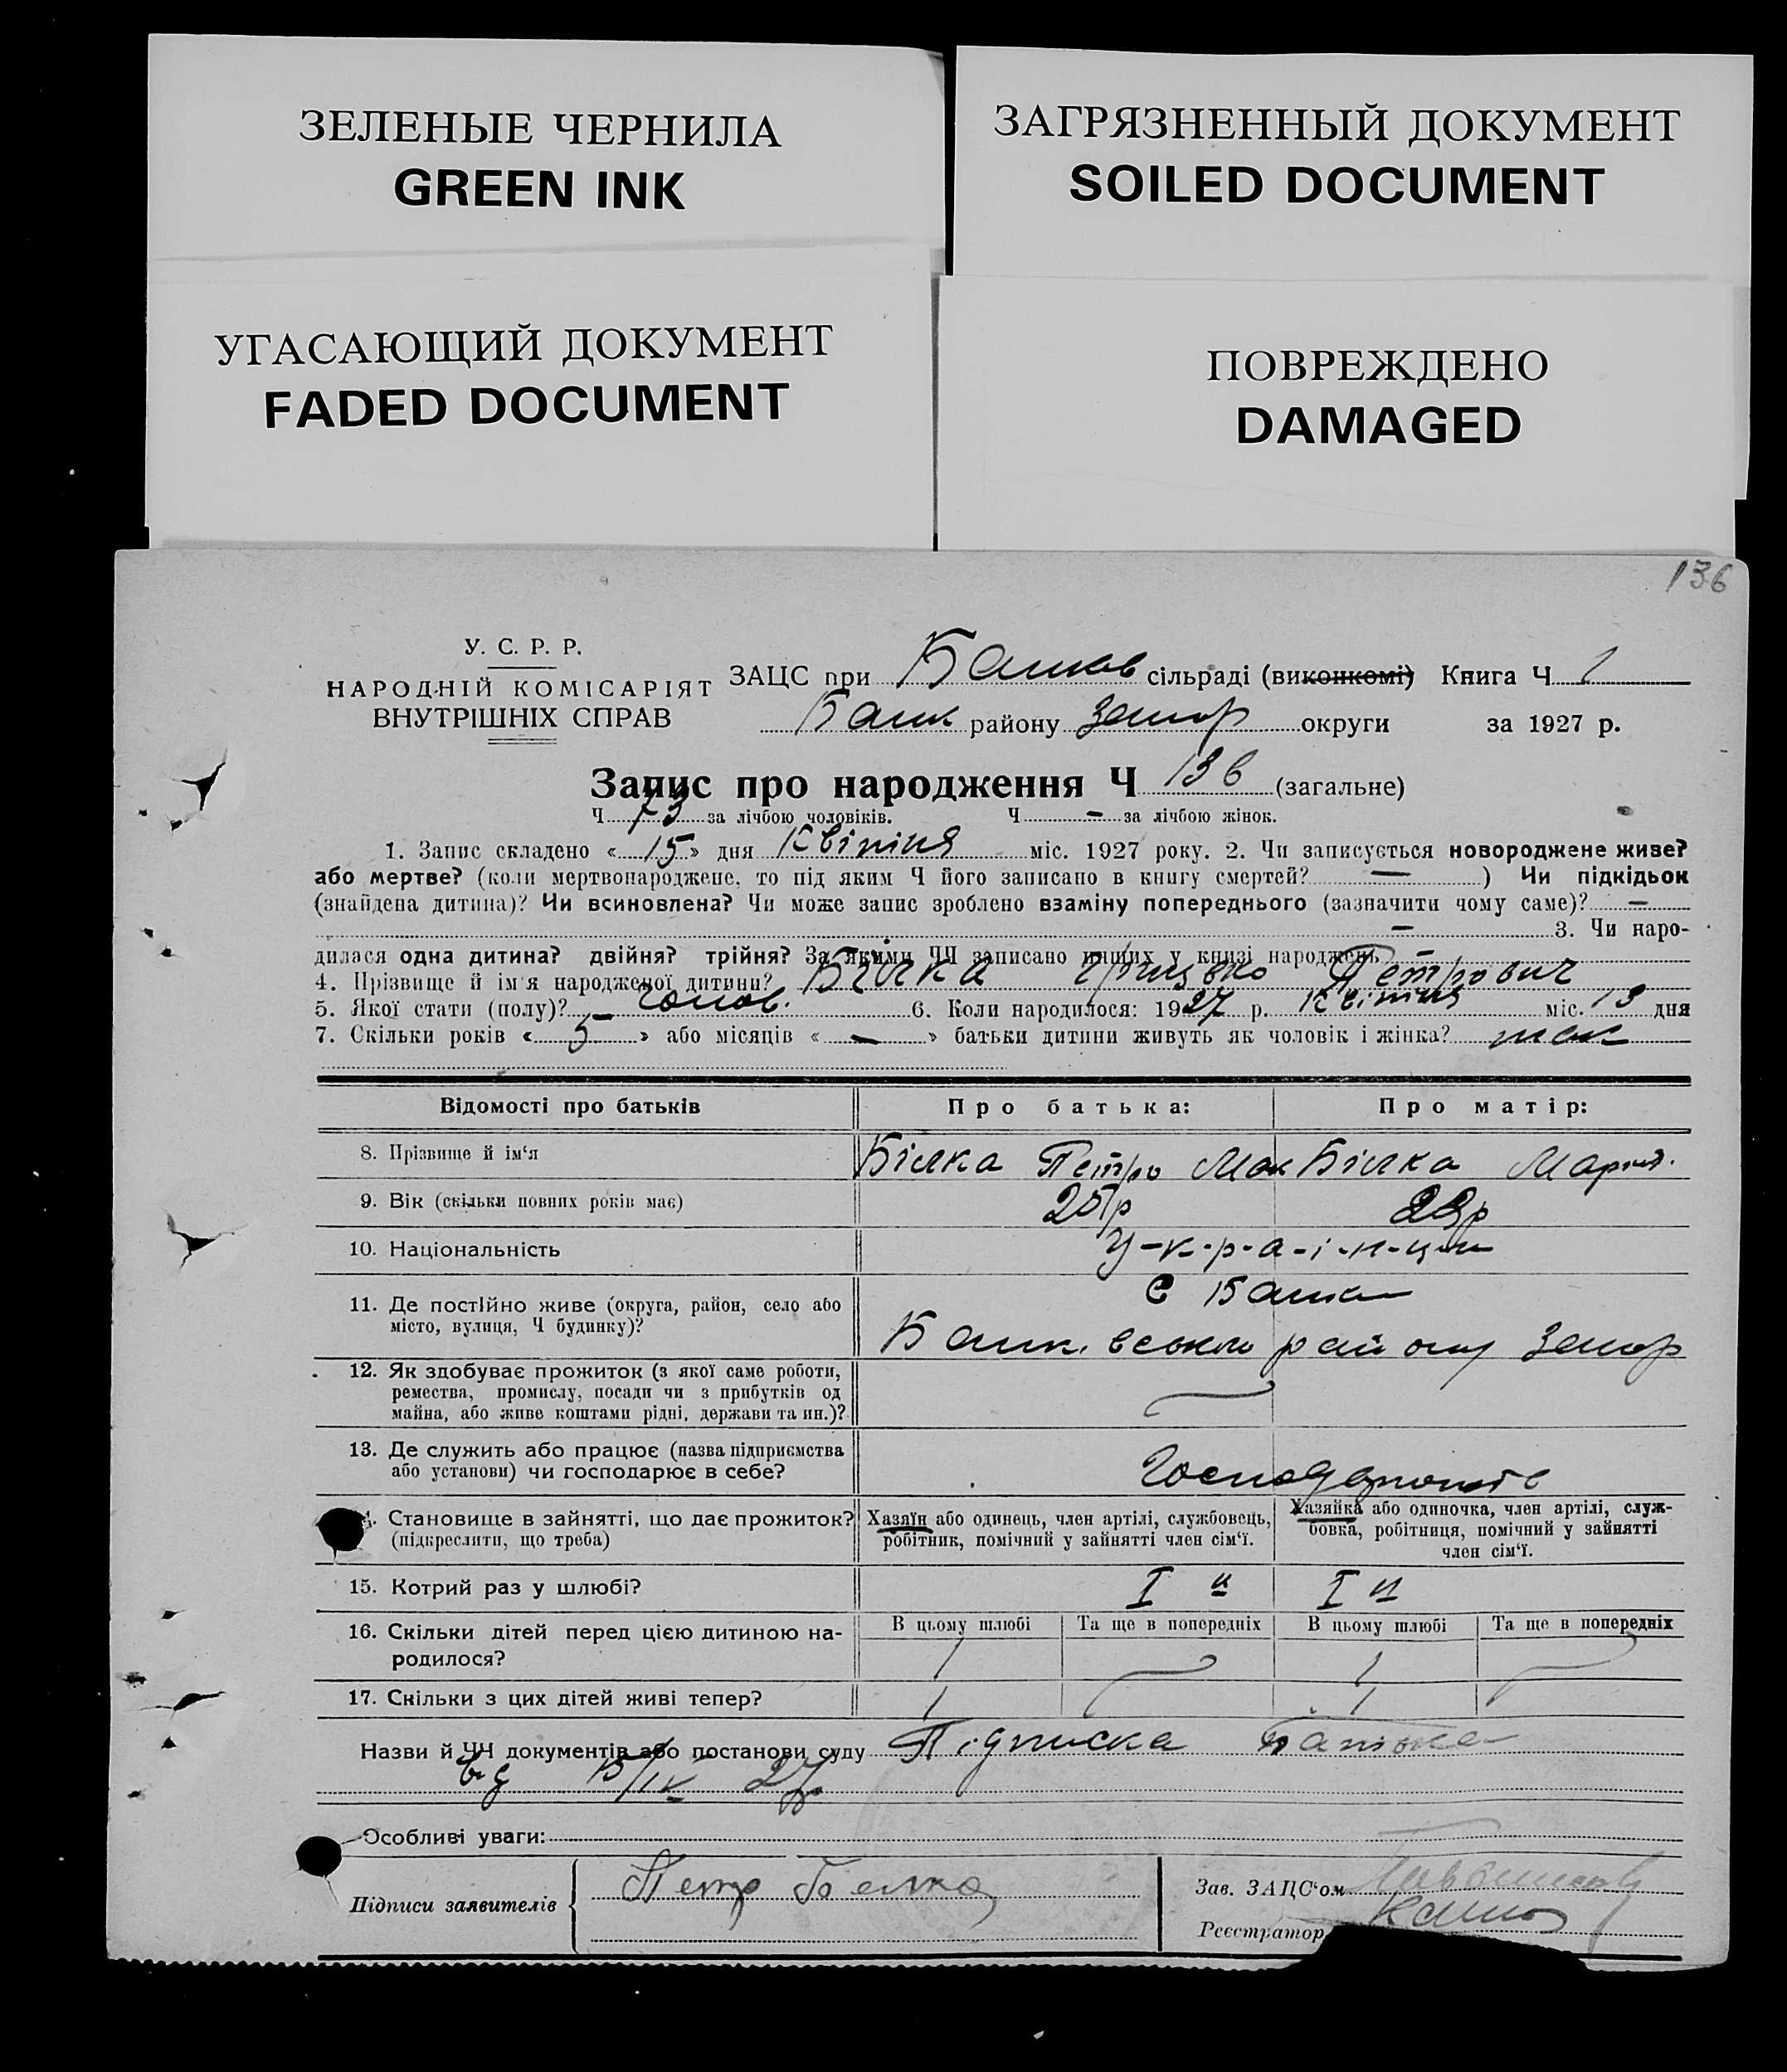 ЗЕЛЕНЫЕ ЧЕРНИЛА
GREEN INK
ЗАГРЯЗНЕННЫЙ ДОКУМЕНТ
SOILED DOCUMENT
УГАСАЮЩИЙ ДОКУМЕНТ
FADED DOCUMENT
ПОВРЕЖДЕНО
DAMAGED
136
У. С. Р. Р.
НАРОДНІЙ КОМІСАРІЯТ
ВНУТРІШНІХ СПРАВ
ЗАЦС при сільраді (виконкомі) Книга Ч 1
району округи за 1927 р.
Запис про народження Ч 136 (загальне)
Ч 73 за лічбою чоловіків. Ч — за лічбою жінок.
1. Запис складено « 15 » дня Квітня міс. 1927 року. 2. Чи записується новороджене живе?
або мертве? (коли мертвонароджене, то під яким Ч його записано в книгу смертей? — ) Чи підкідьок
(знайдена дитина)? Чи всиновлена? Чи може запис зроблено взаміну попереднього (зазначити чому саме)? —
— 3. Чи наро-
дилася одна дитина? двійня? трійня? За якими ЧЧ записано инших у книзі народжень
4. Прізвище й ім'я народженої дитини? Білка Грицько Петрович
5. Якої стати (полу)? чолов. 6. Коли народилося: 1927 р. Квітня міс. 13 дня
7. Скільки років « 5 » або місяців « — » батьки дитини живуть як чоловік і жінка? так
Відомості про батьків Про батька: Про матір:
8. Прізвище й ім'я Білка Петро Мак Білка Мария.
9. Вік (скільки повних років має) 25 р 23 р
10. Національність У-к-р-а-ї-н-ци
11. Де постійно живе (округа, район, село або
місто, вулиця, Ч будинку)? району
12. Як здобуває прожиток (з якої саме роботи,
ремества, промислу, посади чи з прибутків од
майна, або живе коштами рідні, держави та ин.)?
13. Де служить або працює (назва підприємства
або установи) чи господарює в себе?
14. Становище в зайнятті, що дає прожиток?
(підкреслити, що треба)
Хазяїн або одинець, член артілі, службовець,
робітник, помічний у зайнятті член сім'ї.
Хазяйка або одиночка, член артілі, служ-
бовка, робітниця, помічний у зайнятті
член сім'ї.
15. Котрий раз у шлюбі? I й I й
16. Скільки дітей перед цією дитиною на-
родилося?
В цьому шлюбі Та ще в попередніх В цьому шлюбі Та ще в попередніх
1 1
17. Скільки з цих дітей живі тепер? 1 1
Назви й ЧЧ документів або постанови суду Підписка батька
від 15/IV 27
Особливі уваги:
Підписи заявителів Петр Белка
Зав. ЗАЦС'ом
Реєстратор